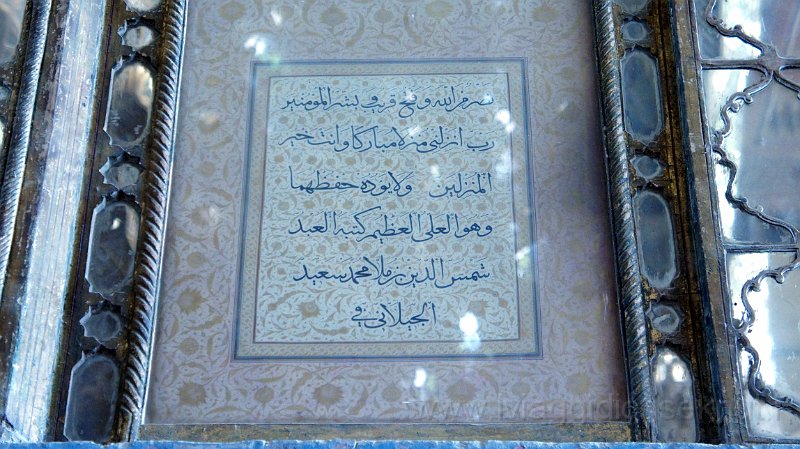 نصر من الله وفتح قريب وبشر المومنين
رب انزلني منزلا مباركا وانت خير
المنزلين ولا يوده حفظهما
وهو العلي العظيم كتبه العبد
شمس الدين بن ملا محمد سعيد
الجيلاني في